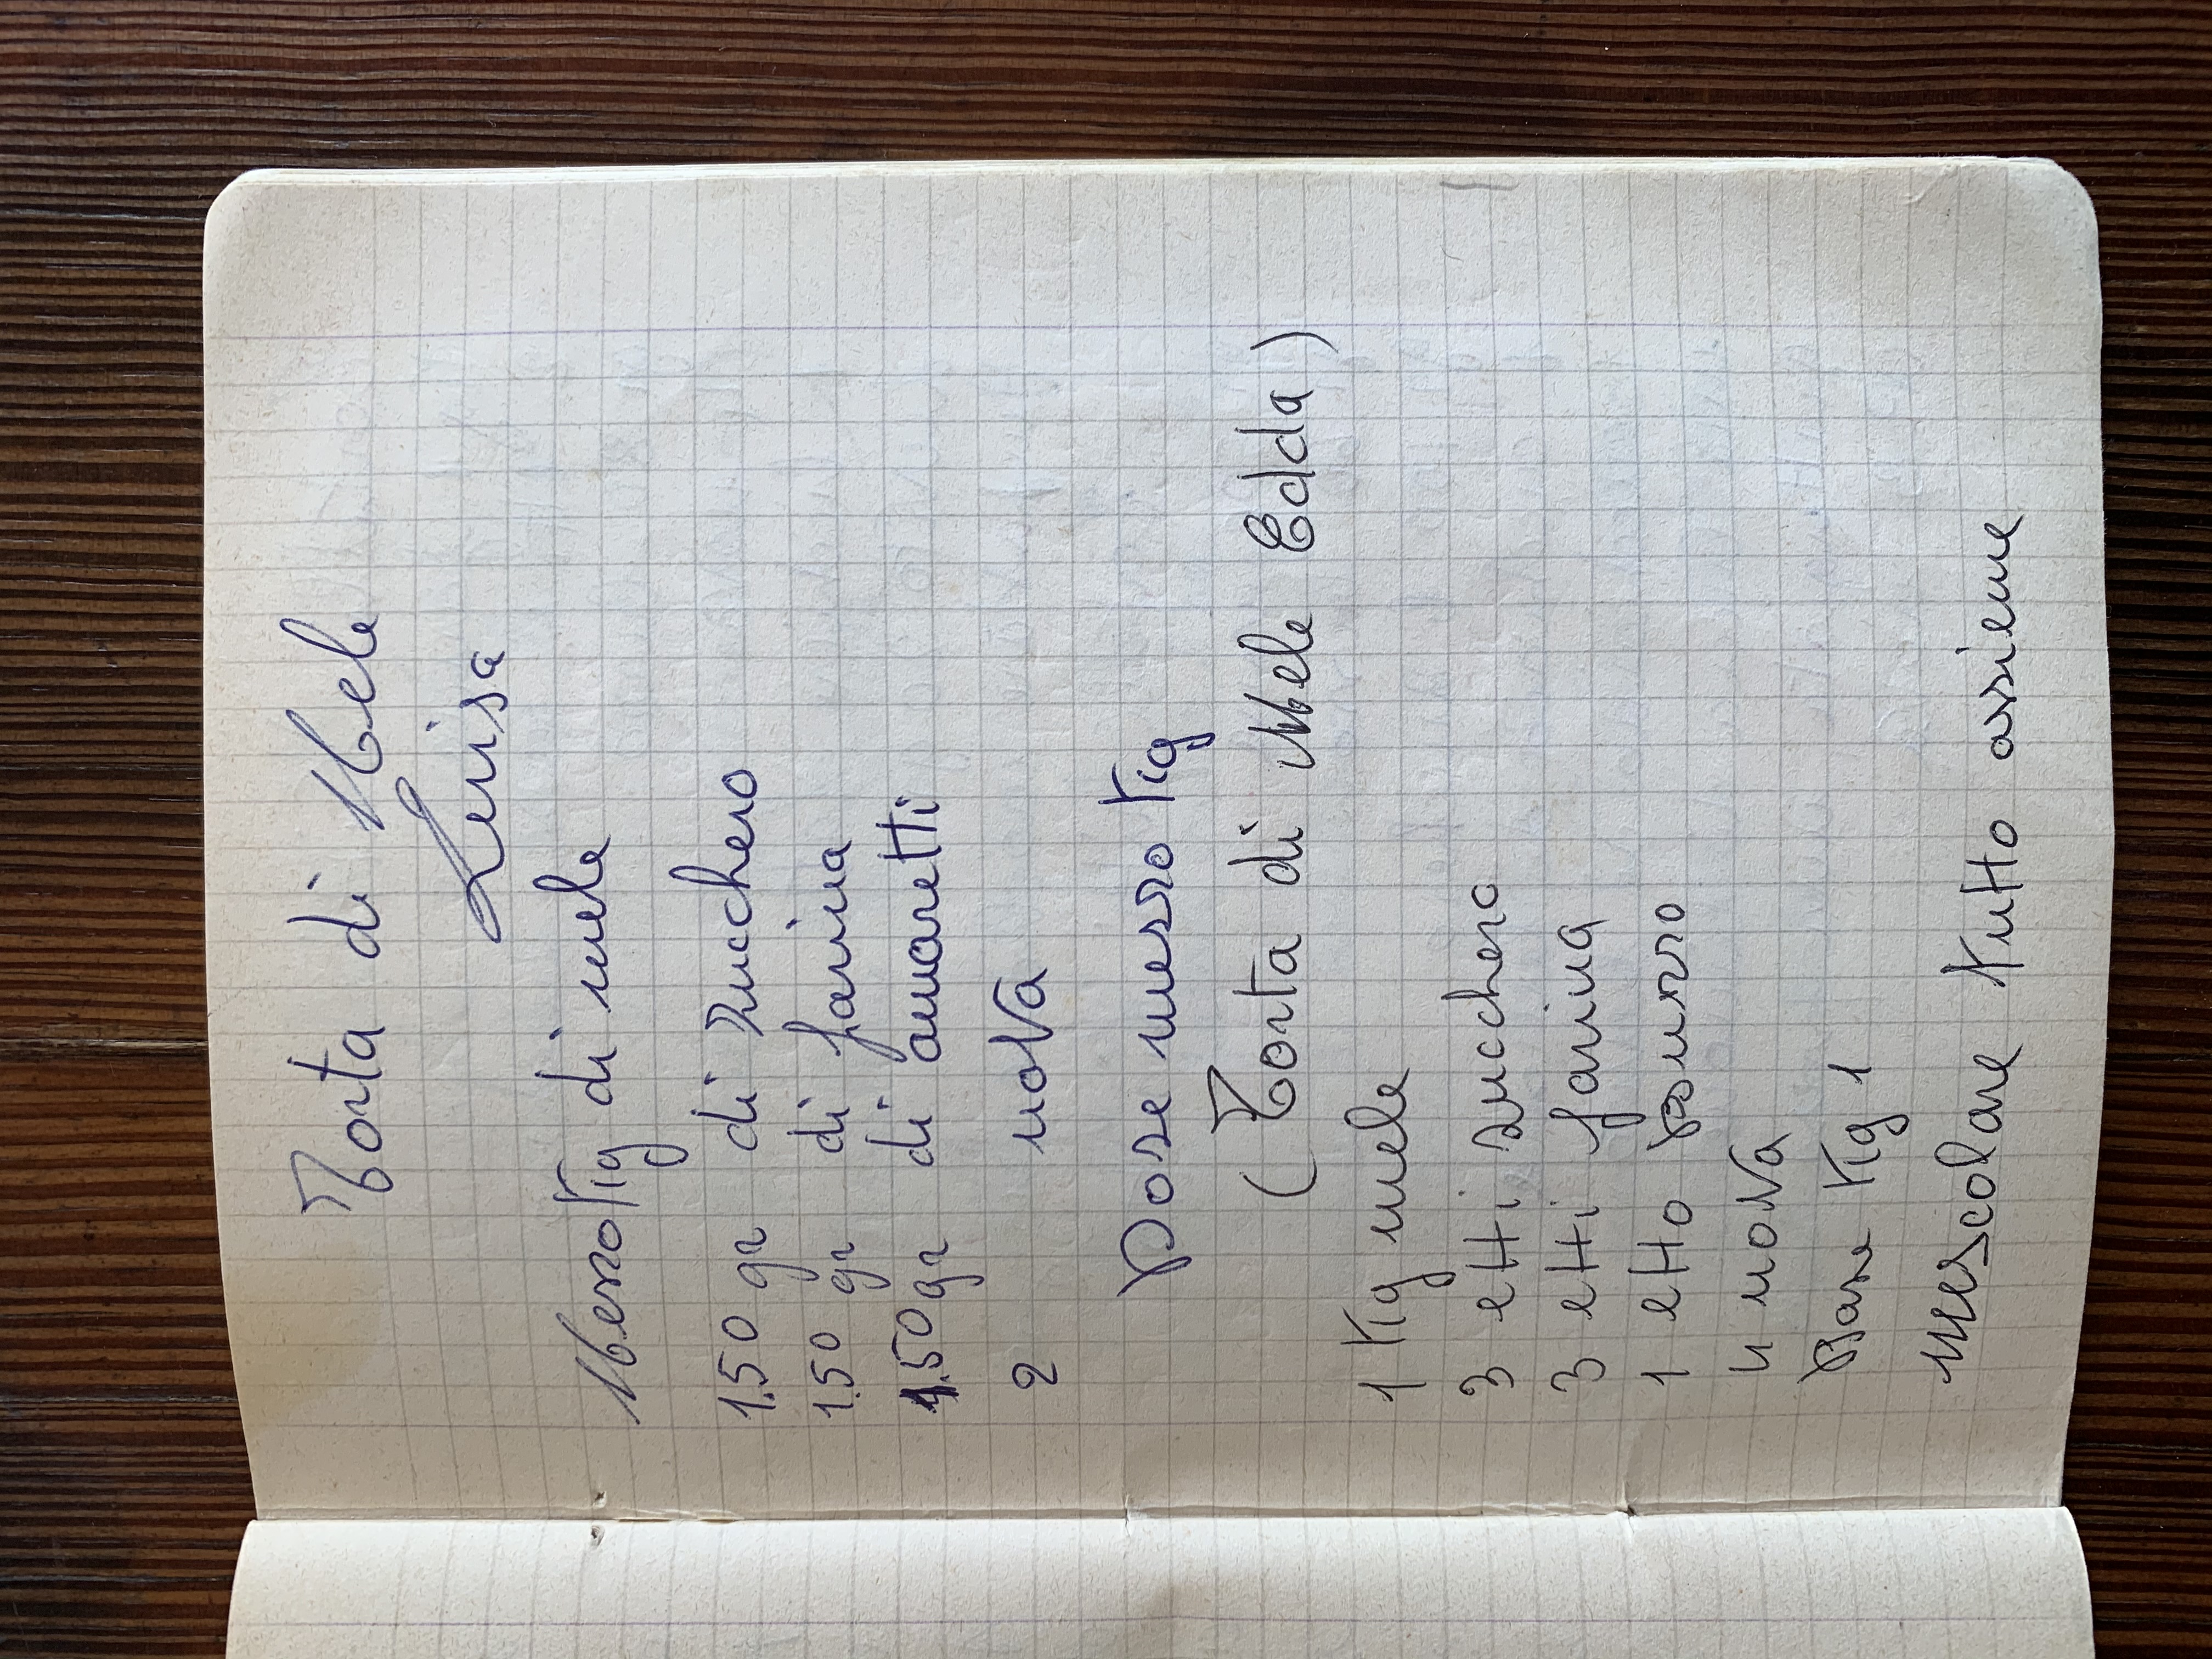 Torta di Mele
Luisa
Mezzo Kg di mele
1.50 gr di zucchero
1.50 gr di farina
1.50 gr di amaretti
2 uova
Dose mezzo Kg
(Torta di Mele Edda)
1 Kg mele
3 etti zucchero
3 etti farina
1 etto Burro
4 uova
Base Kg 1
mescolare tutto assieme